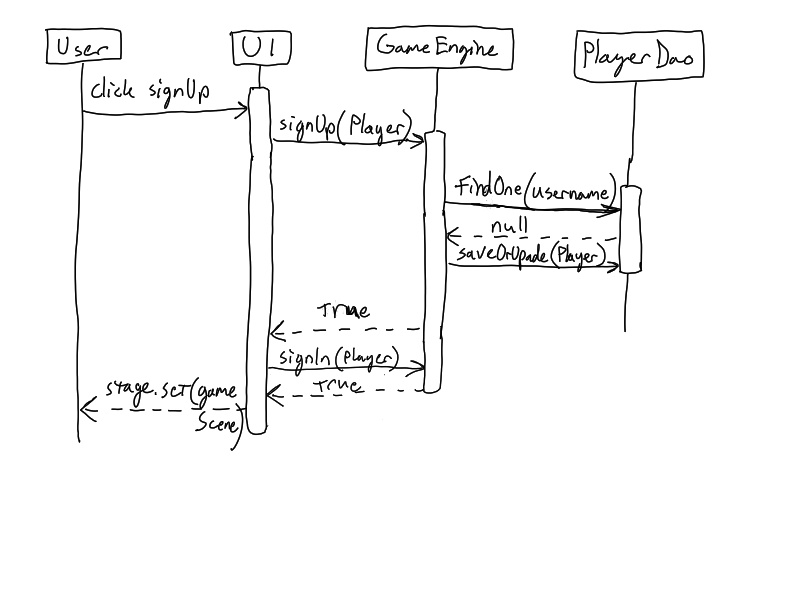 User
UI
Game Engine
Player Dao
click signUp
signUp(Player)
FindOne(username)
null
saveOrUpade(Player)
True
signIn(Player)
True
stage.set(game
Scene)